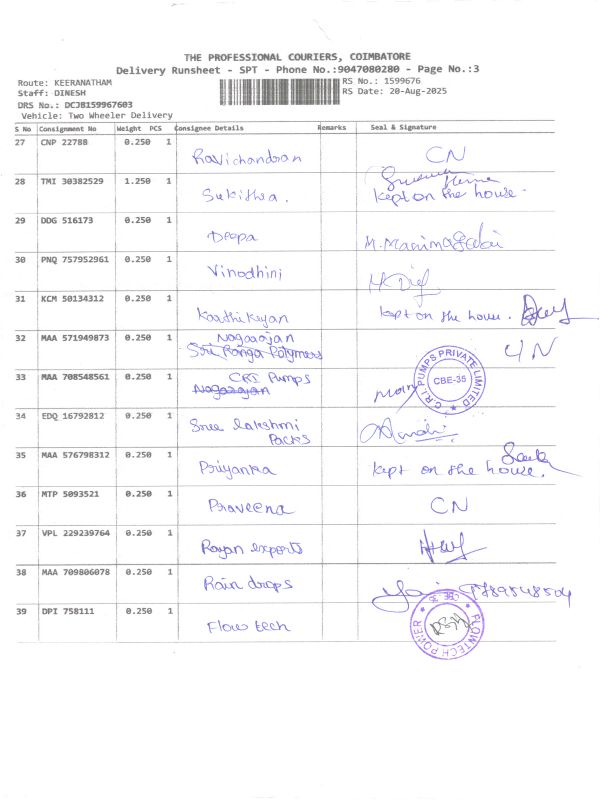 THE PROFESSIONAL COURIERS, COIMBATORE
Delivery Runsheet - SPT - Phone No.:9047080280 - Page No.:3
Route: KEERANATHAM RS No.: 1599676
Staff: DINESH RS Date: 20-Aug-2025
DRS No.: DCJ8159967603
Vehicle: Two Wheeler Delivery
S No Consignment No Weight PCS Consignee Details Remarks Seal & Signature
27 CNP 22788 0.250 1 Ravichandran CN
28 TMI 30382529 1.250 1 Sukithra. kept on the house.
29 DDG 516173 0.250 1 Deepa
30 PNQ 757952961 0.250 1 Vinodhini
31 KCM 50134312 0.250 1 Karthikeyan kept on the house.
32 MAA 571949873 0.250 1 Nagarajan
Sri Ranga Polymers
33 MAA 708548561 0.250 1 CRI Pumps C.R.I. PUMPS PRIVATE LIMITED CBE-35
Nagarajan
34 EDQ 16792812 0.250 1 Sree lakshmi
Packs
35 MAA 576798312 0.250 1 Priyanka kept on the house.
36 MTP 5093521 0.250 1 Praveena CN
37 VPL 229239764 0.250 1 Rayan exports
38 MAA 709806078 0.250 1 Rain drops
39 DPI 758111 0.250 1 Flow tech FLOWTECH POWER